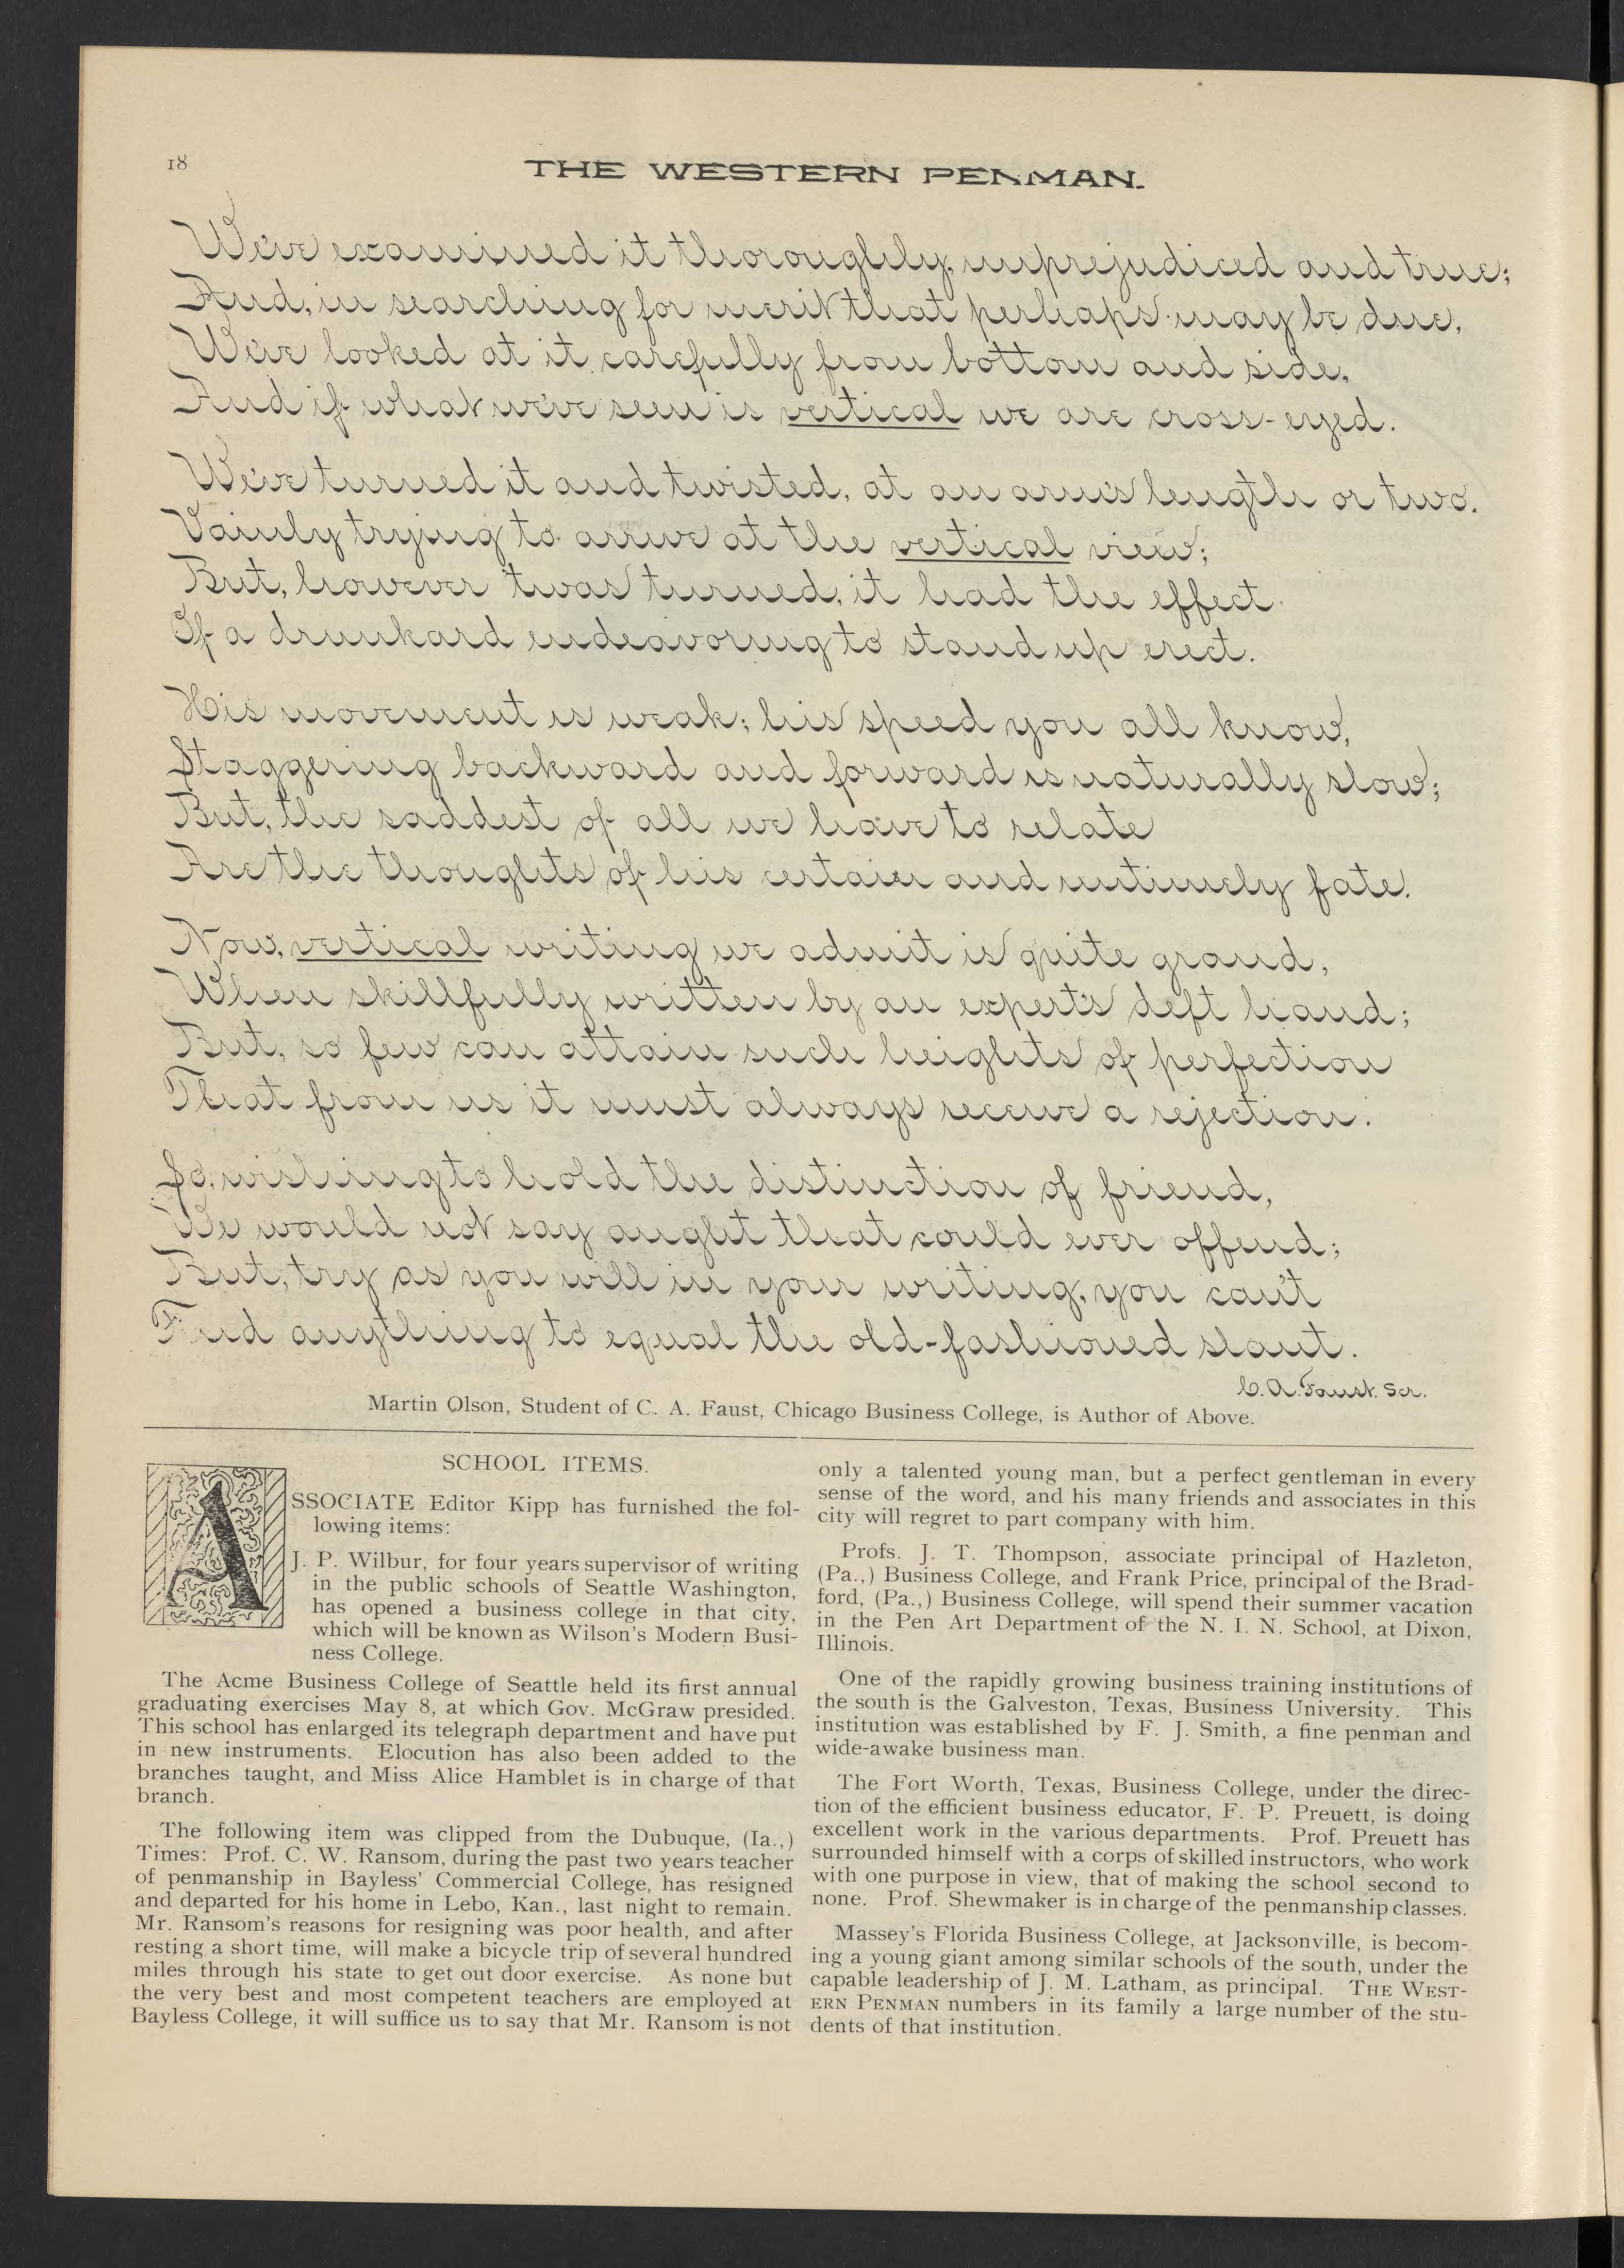 18
THE WESTERN PENMAN.
We've examined it thoroughly, unprejudiced and true;
And, in searching for merit that perhaps may be due,
We've looked at it carefully from bottom and side,
And if what we've seen is vertical we are cross-eyed.
We've turned it and twisted, at an arm's length or two.
Vainly trying to arrive at the vertical view;
But, however 'twas turned, it had the effect
Of a drunkard endeavoring to stand up erect.
His movement is weak; his speed you all know,
Staggering backward and forward is naturally slow;
But, the saddest of all we have to relate
Are the thoughts of his certain and untimely fate.
Now, vertical writing we admit is quite grand,
When skillfully written by an expert's deft hand;
But, so few can attain such heights of perfection
That from us it must always receive a rejection.
So, wishing to hold the distinction of friend,
We would not say aught that could ever offend;
But, try as you will in your writing, you can't
Find anything to equal the old-fashioned slant.
C. A. Faust. Scr.
Martin Olson, Student of C. A. Faust, Chicago Business College, is Author of Above.
SCHOOL ITEMS.
ASSOCIATE Editor Kipp has furnished the fol-
lowing items:
J. P. Wilbur, for four years supervisor of writing
in the public schools of Seattle Washington,
has opened a business college in that city,
which will be known as Wilson's Modern Busi-
ness College.
The Acme Business College of Seattle held its first annual
graduating exercises May 8, at which Gov. McGraw presided.
This school has enlarged its telegraph department and have put
in new instruments. Elocution has also been added to the
branches taught, and Miss Alice Hamblet is in charge of that
branch.
The following item was clipped from the Dubuque, (Ia.,)
Times: Prof. C. W. Ransom, during the past two years teacher
of penmanship in Bayless' Commercial College, has resigned
and departed for his home in Lebo, Kan., last night to remain.
Mr. Ransom's reasons for resigning was poor health, and after
resting a short time, will make a bicycle trip of several hundred
miles through his state to get out door exercise. As none but
the very best and most competent teachers are employed at
Bayless College, it will suffice us to say that Mr. Ransom is not
only a talented young man, but a perfect gentleman in every
sense of the word, and his many friends and associates in this
city will regret to part company with him.
Profs. J. T. Thompson, associate principal of Hazleton,
(Pa.,) Business College, and Frank Price, principal of the Brad-
ford, (Pa.,) Business College, will spend their summer vacation
in the Pen Art Department of the N. I. N. School, at Dixon,
Illinois.
One of the rapidly growing business training institutions of
the south is the Galveston, Texas, Business University. This
institution was established by F. J. Smith, a fine penman and
wide-awake business man.
The Fort Worth, Texas, Business College, under the direc-
tion of the efficient business educator, F. P. Preuett, is doing
excellent work in the various departments. Prof. Preuett has
surrounded himself with a corps of skilled instructors, who work
with one purpose in view, that of making the school second to
none. Prof. Shewmaker is in charge of the penmanship classes.
Massey's Florida Business College, at Jacksonville, is becom-
ing a young giant among similar schools of the south, under the
capable leadership of J. M. Latham, as principal. THE WEST-
ERN PENMAN numbers in its family a large number of the stu-
dents of that institution.